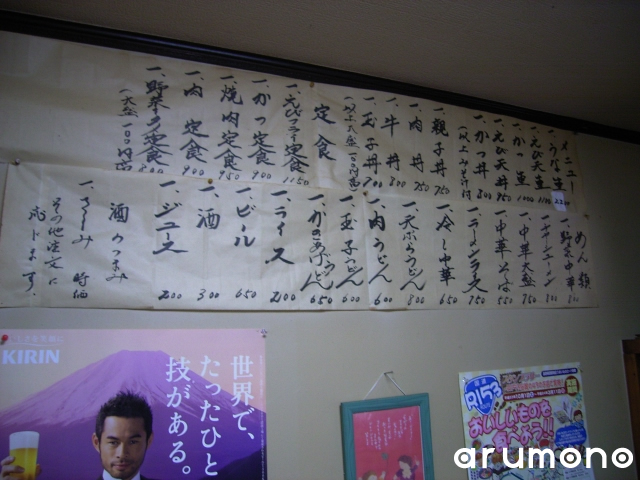 メニュー
一、うな重
一、えび天重 1100
一、かつ重 1000
一、えび天丼 950
一、かつ丼 800
(以上みそ汁付)
一、親子丼 750
一、肉丼 750
一、牛丼 800
一、玉子丼 700
定食
一、えびフライ定食 1150
一、かつ定食 900
一、焼肉定食 950
一、肉定食 900
一、野菜炒め定食 800
めん類
一、野菜中華
一、チャーシューメン 800
一、中華大盛 750
一、中華そば 550
一、ラーメンライス 750
一、冷し中華 650
一、天ぷらうどん 650
一、肉うどん 600
一、玉子うどん 600
一、かきあげうどん 650
一、ライス 200
一、ビール 650
一、酒 300
一、ジュース 200
酒のつまみ
一、さしみ 時価
その他注文に
応じます。
KIRIN
世界で、
たったひと
技がある。
R153
おいしいものを
食べよう!!
arumono